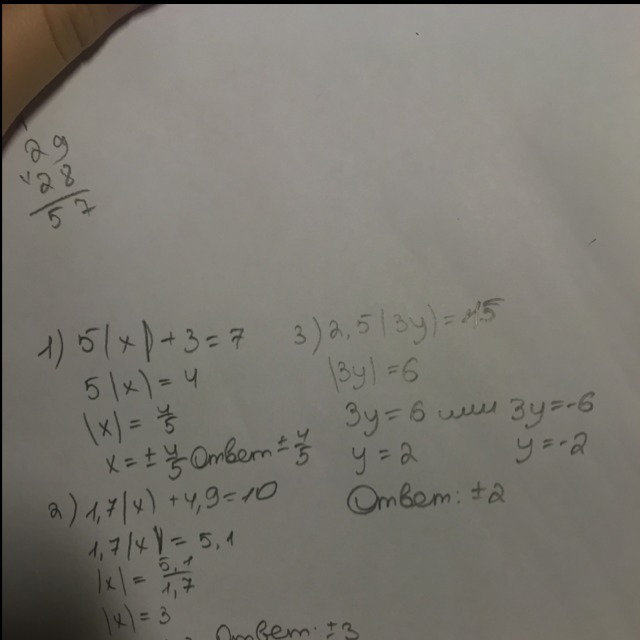 29
+28
57
1) 5|x|+3=7
5|x|=4
|x|=4/5
x=±4/5 Ответ ±4/5
2) 1,7|x|+4,9=10
1,7|x|=5,1
|x|=5,1/1,7
|x|=3
Ответ: ±3
3) 2,5|3y|=15
|3y|=6
3y=6 или 3y=-6
y=2 y=-2
Ответ: ±2